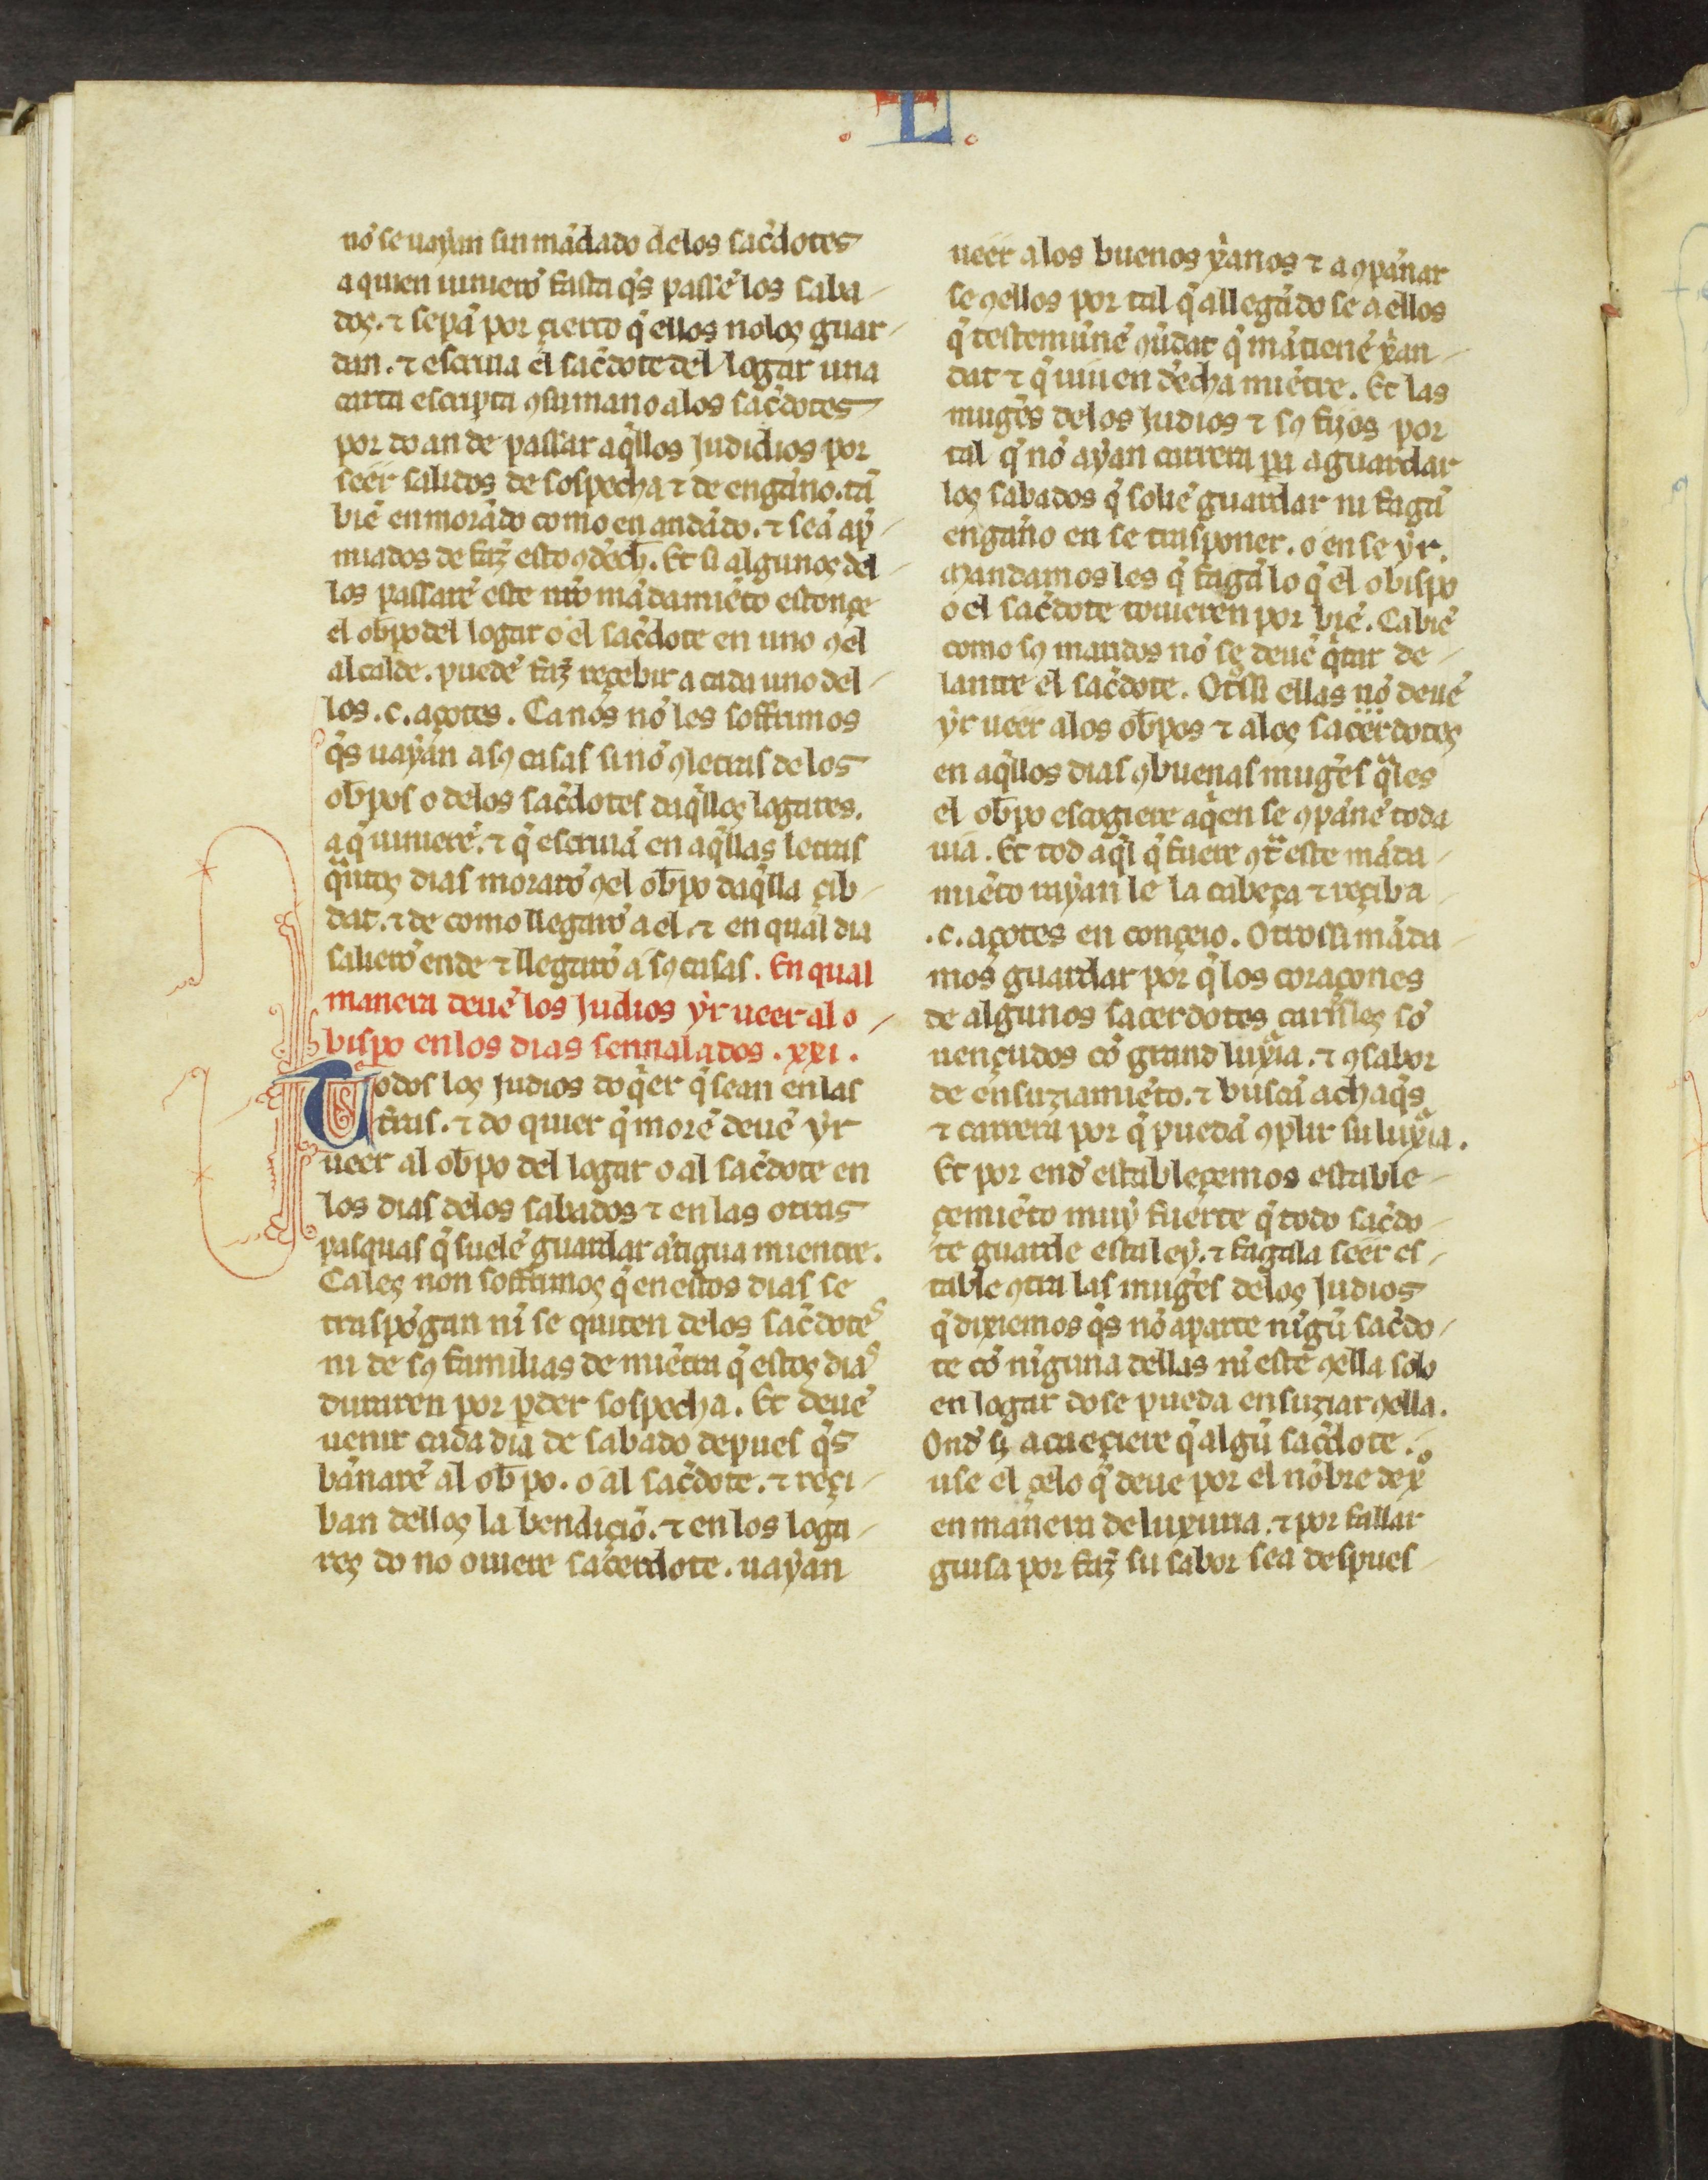 .L.
nõ se uayan sin mãdado delos sac̃dotes
a quien uiniero᷑ fasta q̃s passe᷑ los saba-
dos. ⁊ sepã por çierto q̃ ellos nolos guar-
dan. ⁊ escriua el sac̃dote del logar una
carta escripta ꝯsu mano alos sac̃dotes
por do an de passar aq̃llos Judidios por
seer salidos de sospecha ⁊ de engan̄o. tã
biẽ en morãdo como en andãdo. ⁊ seã ap̃-
miados de faz̃ esto ꝯdech̃. Et si algunos del-
los passarẽ este nr̃o mãdamiẽto estonçe
el ob̃po del logar o el sac̃dote en uno ꝯel
alcalde. puedẽ faz̃ reçebir a cada uno del-
los .c. açotes. Ca nos nõ les soffrimos
q̃s uayan a sꝯ casas si nõ ꝯ letras de los
ob̃pos o delos sac̃dotes daq̃llos logares.
a q̃ uinierẽ. ⁊ q̃ escriuã en aq̃llas letras
q̃ntos dias morarõ ꝯel ob̃po daq̃lla çib-
dat. ⁊ de como llegarõ a el. ⁊ en qual dia
salierõ ende ⁊ llegarõ a sꝯ casas. En qual
manera deuẽ los Judios yr ueer al o-
bispo en los dias sennalados .xxi.
Todos los Judios do q̃er q̃ sean en las
tr̃ras. ⁊ do quier q̃ morẽ deuẽ yr
ueer al ob̃po del logar o al sac̃dote en
los dias delos sabados ⁊ en las otras
pasquas q̃ suelẽ guardar ãtigua mientre.
Ca les non soffrimos q̃ en estos dias se
traspõgan nĩ se quiten delos sac̃dotes
ni de sꝯ familias de miẽtra q̃ estos dias
duraren por p̃der sospecha. Et deuẽ
uenir cada dia de sabado depues q̃s
ban̄arẽ al ob̃po. o al sac̃dote. ⁊ reçi-
ban dellos la bendiçiõ. ⁊ en los loga-
res do no ouiere sacerdote. uayan
ueer alos buenos xp̃anos ⁊ a ꝯpan̄ar
se ꝯellos por tal q̃ allegãdo se a ellos
q̃ testemun̄ẽ ũdat q̃ mãtienẽ xp̃an-
dat ⁊ q̃ uiuen dẽcha miẽtre. Et las
mug̃es delos Judios ⁊ sꝯ fijos por
tal q̃ nõ ayan carrera pa aguardar
los sabados q̃ soliẽ guardar ni fagã
engan̄o en se trasponer. o en se yr.
Mandamos les q̃ fagã lo q̃ el obispo
o el sac̃dote touieren por biẽ. Ca biẽ
como sꝯ maridos nõ se deuẽ q̃tar de-
lantre el sac̃dote. Otrsi ellas nõ deuẽ
yr ueer alos ob̃pos ⁊ alos sacerdotes
en aq̃llos dias ꝯ buenas mug̃es q̃les
el ob̃po escogiere aq̃en se ꝯpan̄ẽ toda
uia. Et tod aq̃l q̃ fuere ꝯt̃ este mãda-
miẽto rayan le la cabeça ⁊ reçiba
.c. açotes en conçeio. Otrossi mãda-
mos guardar por q̃ los coraçones
de algunos sacerdotes carñles sõ
uençudos cõ grand lux̃ia. ⁊ ꝯ sabor
de ensuziamiẽto. ⁊ buscã achaq̃s
⁊ carrera por q̃ puedã ꝯplir su lux̃ia.
Et por end̃ estableçemos estable-
çemiẽto muy fuerte q̃ todo sac̃do-
te guarde esta ley. ⁊ fagala seer es-
table ꝯtra las mug̃es delos Judios
q̃ dixiemos q̃s nõ aparte nĩgũ sac̃do-
te cõ nĩguna dellas nĩ estẽ ꝯella solo
en logar do se pueda ensuziar ꝯella.
Ond̃ si acaeçiere q̃ algũ sac̃dote.
use el çelo q̃ deue por el nõbre de xp̃o
en manera de luxuria. ⁊ por fallar
guisa por faz̃ su sabor sea despues